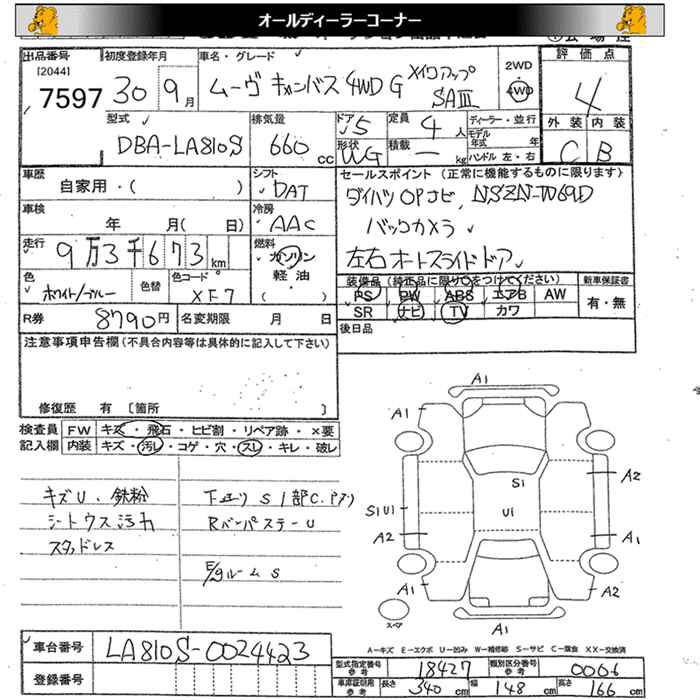 オールディーラーコーナー
出品番号
[2044]
7597
初度登録年月
30年 9月
車名・グレード
ムーヴ キャンバス 4WD G メイクアップ
SAⅢ
2WD
4WD
評価点
4
外装 内装
C B
型式
DBA-LA810S
排気量
660 cc
ドア
5
定員
4 人
形状
WG
積載
— kg
ディーラー・並行
モデル
年式 年
ハンドル 左・右
車歴
自家用・( )
シフト
DAT
車検
年 月( 日)
冷房
AAC
走行
9万3千673 km
燃料
ガソリン
軽油
( )
色
ホワイト/ブルー
色替
色コードNo.
XF7
R券
8790円
名変期限 月 日
セールスポイント (正常に機能するものに限ります)
ダイハツOPナビ、NSZN-W69D
バックカメラ
左右オートスライドドア
装備品(純正品に限り○をつけてください)
新車保証書
PS PW ABS エアB AW
SR ナビ TV カワ
有・無
後日品
注意事項申告欄(不具合内容等は具体的に記入して下さい)
修復歴 有 〔箇所 〕
検査員
記入欄
FW キズ・飛石・ヒビ割・リペア跡・×要
内装 キズ・汚レ・コゲ・穴・スレ・キレ・破レ
キズU、鉄粉
シートウス汚れ
スタッドレス
下廻り S 1部C、
RバンパステーU
E/gルームS
A1
A1
A1
A2
S1
S1U1
U1
A2
A1
A1
A2
A1
スペア
A−キズ E−エクボ U−凹み W−補修跡 S−サビ C−腐食 XX−交換済
車台番号
LA810S-0024423
登録番号
型式指定番号
参考
18427
類別区分番号
参考
0006
車庫証明用
参考
長さ 340 cm
幅 148 cm
高さ 166 cm